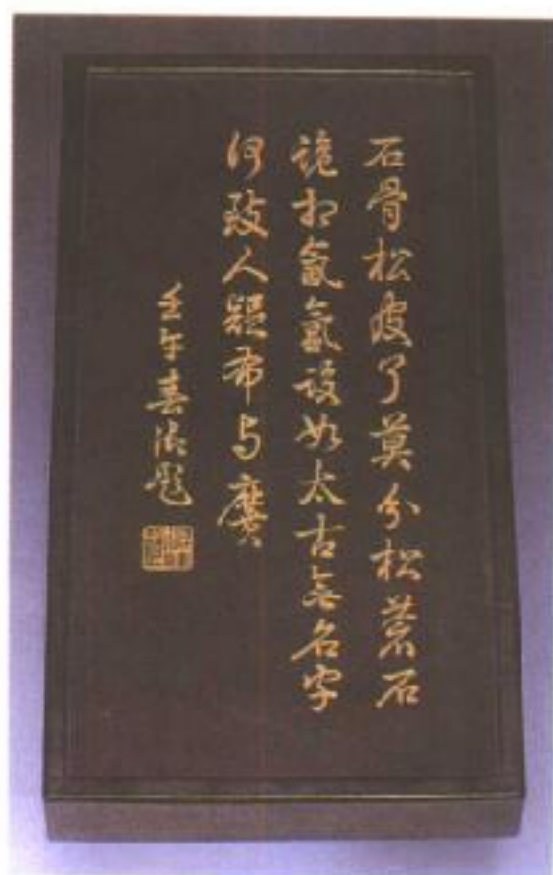 石骨松皮了莫分松蒼石
詭相氤氳設如太古無名字
何致人疑布与黂
壬午春御題